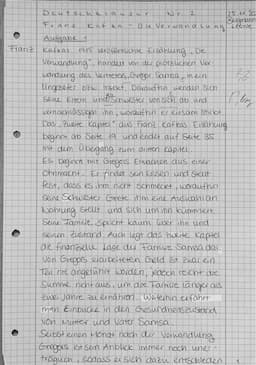 Deutschklausur Nr. 2
Franz Kafka - Die Verwandlung
Aufgabe 1
Franz Kafkas 1915 veröffentlichte Erzählung „Die
Verwandlung", handelt von der plötzlichen Ver-
wandlung des Vertreters, Gregor Samsa, in ein
Ungeziefer bzw. Insekt. Daraufhin wenden sich
seine Eltern und Schwester von sich ab und
vernachlässigen ihn, woraufhin er einsam stirbt.
Das „zweite Kapitel" aus Franz Kafkas Erzählung
beginnt ab Seite 19 und endet auf Seite 35
mit dem Übergang zum dritten Kapitel.
Es beginnt mit Gregors Erwachen aus einer
Ohnmacht. Er findet sein Essen und stellt
fest, dass es ihm nicht schmeckt, woraufhin
seine Schwester Grete ihm eine
stellt und sich um ihn kümmert.
Seine Familie spricht kaum über ihn und
seinen Zustand. Auch legt das zweite Kapitel
die finanzielle Lage der Familie Samsa dar.
Von Gregors erarbeiteten Geld ist zwar ein
Teil angehäuft worden, jedoch reicht die
Summe nicht aus, um die Familie länger als
zwei Jahre zu ernähren. Weiterhin erfährt
man Einblicke in den Gesundheitszustand
von Mutter und Vater Samsa.
Selbst einen Monat nach der Verwandlung
Gregors ist sein Anblick immer noch uner-
träglich, sodass er sich dazu entschieden